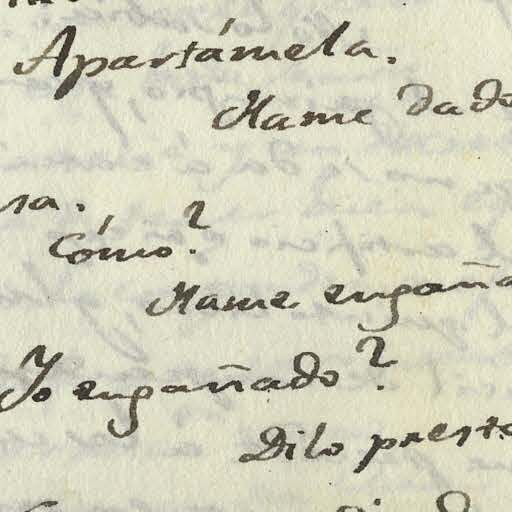 Apartámela.
Hame dado
sa.
Cómo?
Hame engaña
Yo engañado?
Dilo presto